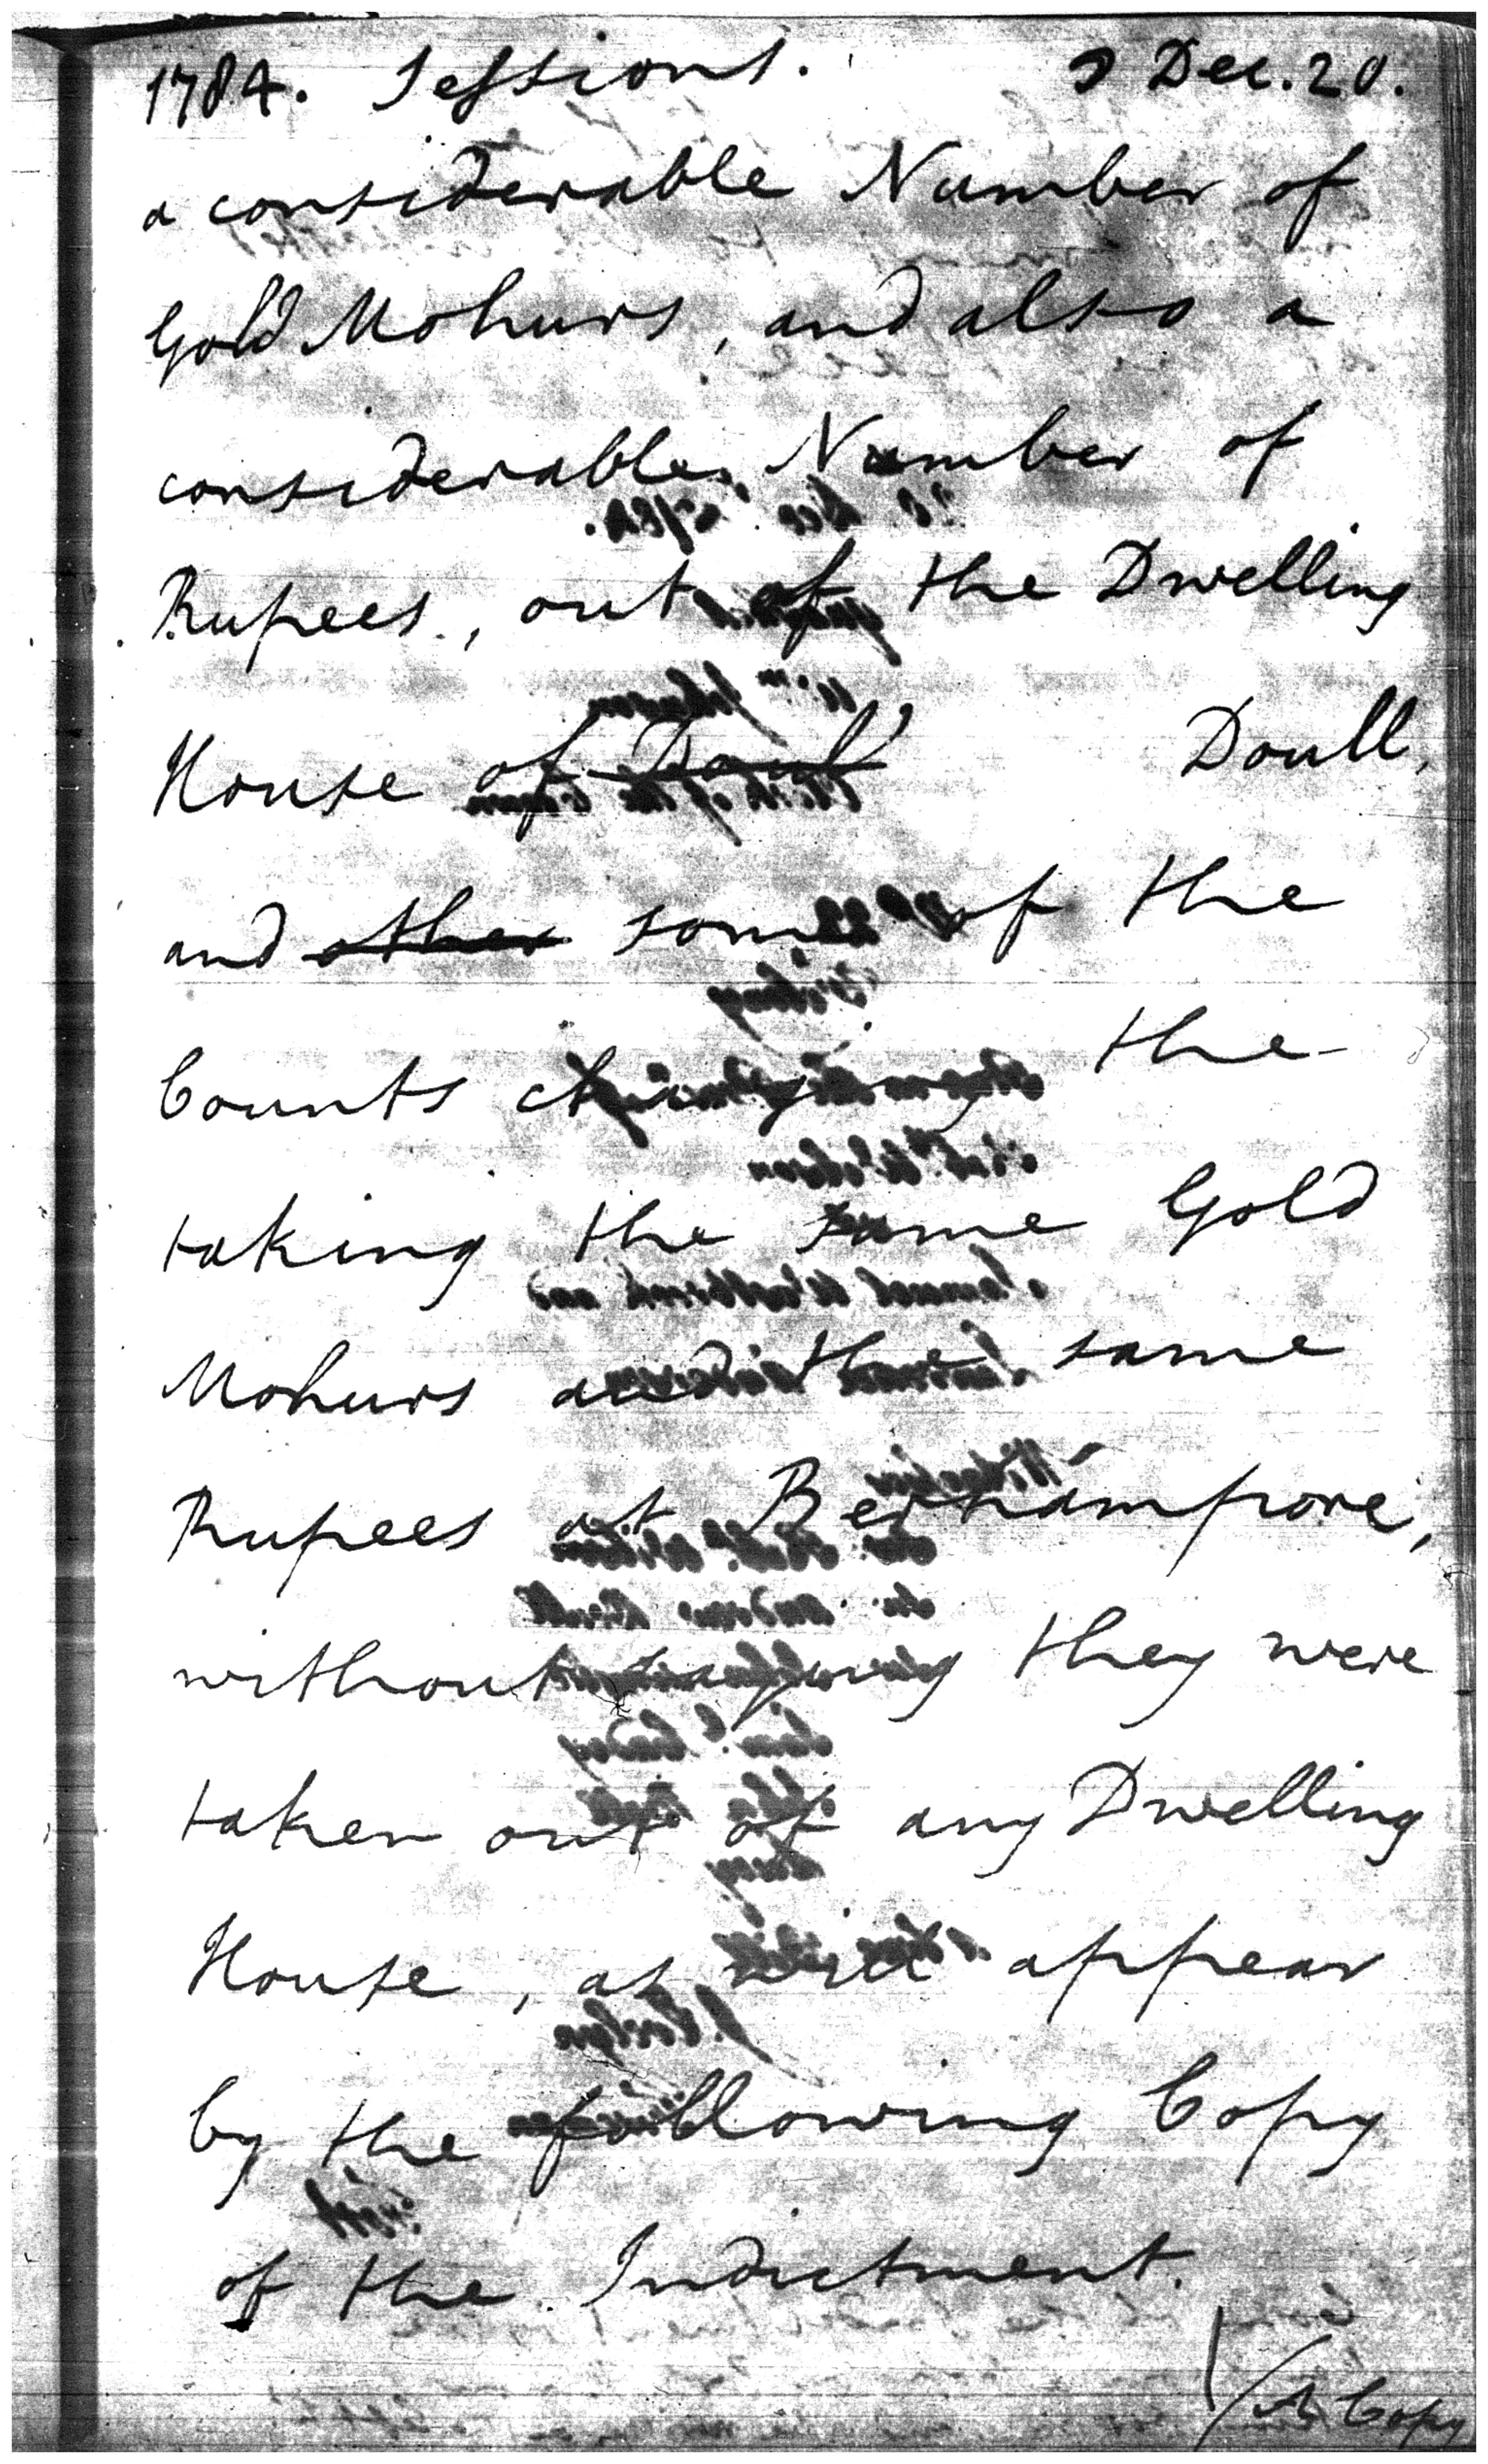 1784. Sessions. Dec. 20.
a considerable Number of
Gold Mohurs, and also a
considerable Number of
Rupees, out of the Dwelling
House of Doull,
and other some of the
Counts charging the
taking the same Gold
Mohurs and the same
Rupees at Berhampore,
without saying they were
taken out of any Dwelling
House, as will appear
by the following Copy
of the Indictment.
A Copy